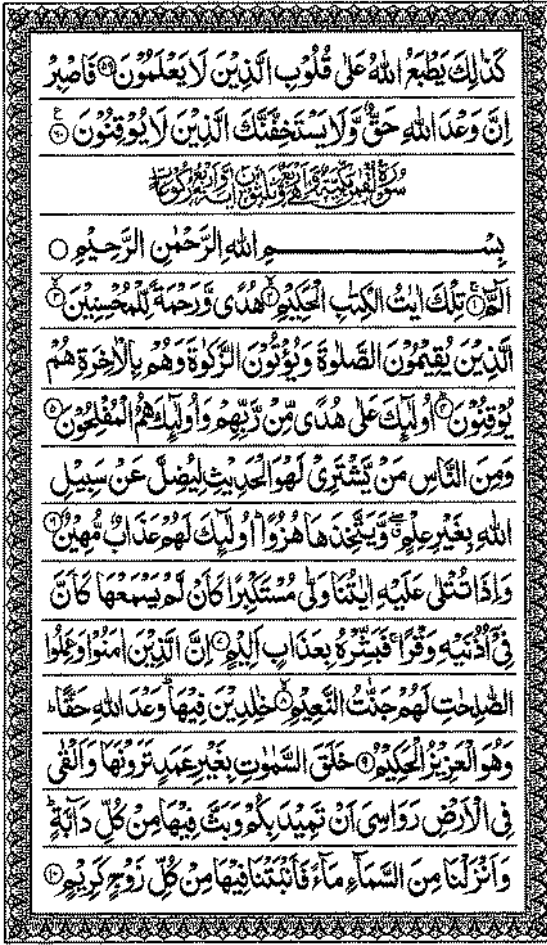 كَذٰلِكَ يَطْبَعُ اللّٰهُ عَلٰى قُلُوْبِ الَّذِيْنَ لَا يَعْلَمُوْنَ ۝۵۹ فَاصْبِرْ
اِنَّ وَعْدَ اللّٰهِ حَقٌّ وَّلَا يَسْتَخِفَّنَّكَ الَّذِيْنَ لَا يُوْقِنُوْنَ ۝۶۰
سُوْرَةُ لُقْمٰنَ مَكِّيَّةٌ وَّهِيَ اَرْبَعٌ وَّثَلٰثُوْنَ اٰيَةً وَّاَرْبَعُ رُكُوْعَاتٍ
بِسْمِ اللّٰهِ الرَّحْمٰنِ الرَّحِيْمِ ۝
الٓمّٓ ۝۱ تِلْكَ اٰيٰتُ الْكِتٰبِ الْحَكِيْمِ ۝۲ هُدًى وَّرَحْمَةً لِّلْمُحْسِنِيْنَ ۝۳
الَّذِيْنَ يُقِيْمُوْنَ الصَّلٰوةَ وَيُؤْتُوْنَ الزَّكٰوةَ وَهُمْ بِالْاٰخِرَةِ هُمْ
يُوْقِنُوْنَ ۝۴ اُولٰٓئِكَ عَلٰى هُدًى مِّنْ رَّبِّهِمْ وَاُولٰٓئِكَ هُمُ الْمُفْلِحُوْنَ ۝۵
وَمِنَ النَّاسِ مَنْ يَّشْتَرِيْ لَهْوَ الْحَدِيْثِ لِيُضِلَّ عَنْ سَبِيْلِ
اللّٰهِ بِغَيْرِ عِلْمٍ ۖ وَّيَتَّخِذَهَا هُزُوًا ؕ اُولٰٓئِكَ لَهُمْ عَذَابٌ مُّهِيْنٌ ۝۶
وَاِذَا تُتْلٰى عَلَيْهِ اٰيٰتُنَا وَلّٰى مُسْتَكْبِرًا كَاَنْ لَّمْ يَسْمَعْهَا كَاَنَّ
فِيْٓ اُذُنَيْهِ وَقْرًا ۚ فَبَشِّرْهُ بِعَذَابٍ اَلِيْمٍ ۝۷ اِنَّ الَّذِيْنَ اٰمَنُوْا وَعَمِلُوا
الصّٰلِحٰتِ لَهُمْ جَنّٰتُ النَّعِيْمِ ۝۸ خٰلِدِيْنَ فِيْهَا ؕ وَعْدَ اللّٰهِ حَقًّا ؕ
وَهُوَ الْعَزِيْزُ الْحَكِيْمُ ۝۹ خَلَقَ السَّمٰوٰتِ بِغَيْرِ عَمَدٍ تَرَوْنَهَا وَاَلْقٰى
فِي الْاَرْضِ رَوَاسِيَ اَنْ تَمِيْدَ بِكُمْ وَبَثَّ فِيْهَا مِنْ كُلِّ دَآبَّةٍ ؕ
وَاَنْزَلْنَا مِنَ السَّمَآءِ مَآءً فَاَنْۢبَتْنَا فِيْهَا مِنْ كُلِّ زَوْجٍ كَرِيْمٍ ۝۱۰